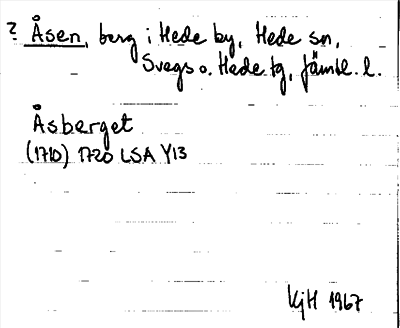 ? Åsen, berg i Hede by, Hede sn,
Svegs o. Hede tg, Jämtl. l.
Åsberget
(1710) 1720 LSA Y13
KjH 1967